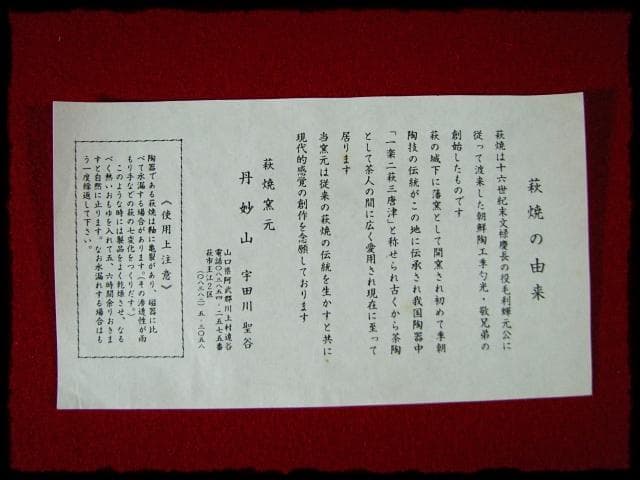 萩焼の由来
萩焼は十六世紀末文禄慶長の役毛利輝元公に
従って渡来した朝鮮陶工李勺光・敬兄弟の
創始したものです
萩の城下に藩窯として開窯され初めて李朝
陶技の伝統がこの地に伝承され我国陶器中
「一楽二萩三唐津」と称せられ古くから茶陶
として茶人の間に広く愛用され現在に至って
居ります
当窯元は従来の萩焼の伝統を生かすと共に
現代的感覚の創作を念願しております
萩焼窯元
丹妙山 宇田川聖谷
山口県阿武郡川上村遠谷
電話〇八三八五四・二五七五番
萩市土江2区
(〇八三八二)五・三〇五八
《使用上注意》
陶器である萩焼は釉に亀裂があり、磁器に比
べて水漏する場合があります。その滲透性が雨
もり手などの萩の七変化をつくりだす。
このような時には製品をよく乾燥させ、なる
べく熱いおもゆを入れて五、六時間余りおきま
すと自然に止ります。なお水漏れする場合はも
う一度繰返して下さい。